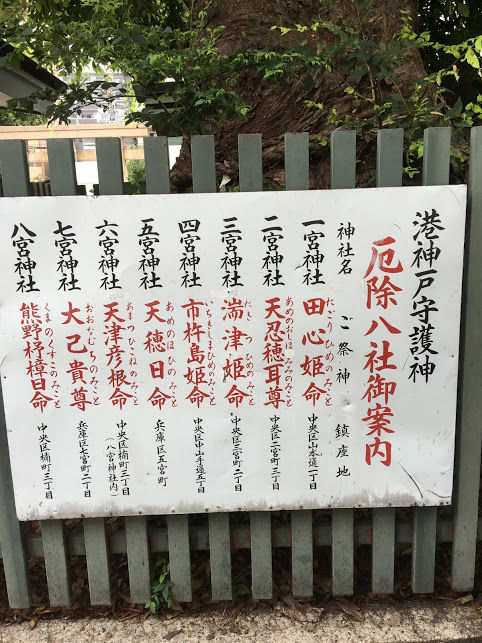 港神戸守護神
厄除八社御案内
神社名 ご祭神 鎮座地
一宮神社 田心姫命 たごりひめのみこと 中央区山本通一丁目
二宮神社 天忍穂耳尊 あめのおしほみみのみこと 中央区二宮町三丁目
三宮神社 湍津姫命 たきつひめのみこと 中央区三宮町二丁目
四宮神社 市杵島姫命 いちきしまひめのみこと 中央区中山手通五丁目
五宮神社 天穂日命 あめのほひのみこと 兵庫区五宮町
六宮神社 天津彦根命 あまつひこねのみこと 中央区楠町三丁目
(八宮神社内)
七宮神社 大己貴尊 おおなむちのみこと 兵庫区七宮町二丁目
八宮神社 熊野杼樟日命 くまのくすひのみこと 中央区楠町三丁目